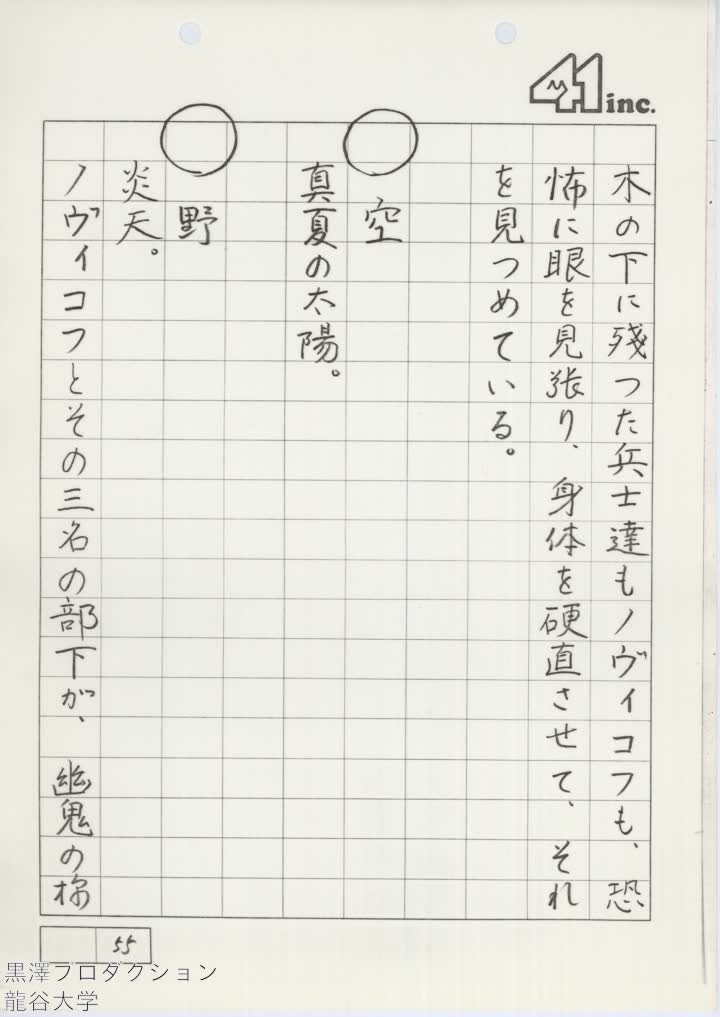 41 inc.
木の下に残つた兵士達もノヴィコフも、恐
怖に眼を見張り、身体を硬直させて、それ
を見つめている。
○ 空
真夏の太陽。
○ 野
炎天。
ノヴィコフとその三名の部下が、幽鬼の様
55
黒澤プロダクション
龍谷大学